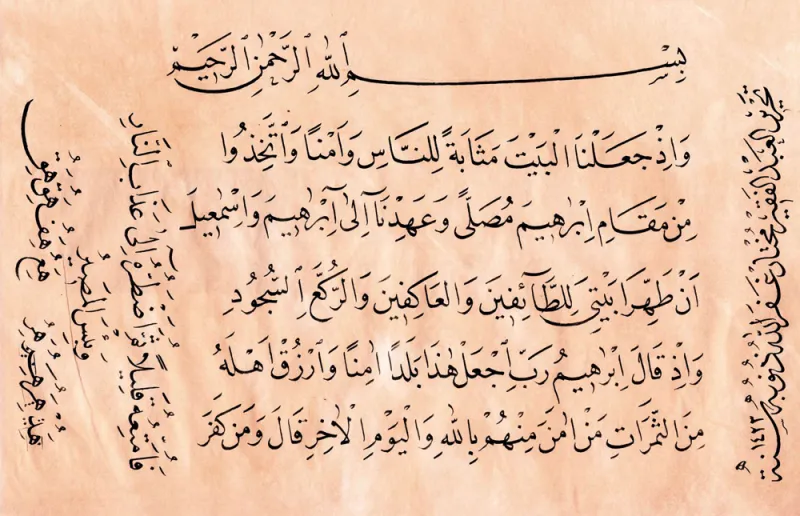 بِسْمِ ٱللهِ ٱلرَّحْمٰنِ ٱلرَّحِيْمِ
وَاِذْ جَعَلْنَا الْبَيْتَ مَثَابَةً لِلنَّاسِ وَاَمْنًا وَاتَّخِذُوا
مِنْ مَقَامِ اِبْرٰهِيمَ مُصَلًّى وَعَهِدْنَآ اِلٰى اِبْرٰهِيمَ وَاِسْمٰعِيلَ
اَنْ طَهِّرَا بَيْتِيَ لِلطَّآئِفِينَ وَالْعَاكِفِينَ وَالرُّكَّعِ السُّجُودِ
وَاِذْ قَالَ اِبْرٰهِيمُ رَبِّ اجْعَلْ هٰذَا بَلَدًا اٰمِنًا وَارْزُقْ اَهْلَهُ
مِنَ الثَّمَرَاتِ مَنْ اٰمَنَ مِنْهُمْ بِاللهِ وَالْيَوْمِ الْاٰخِرِ قَالَ وَمَنْ كَفَرَ
فَاُمَتِّعُهُ قَلِيلًا ثُمَّ اَضْطَرُّهُ اِلٰى عَذَابِ النَّارِ
وَبِئْسَ الْمَصِيرُ
تحرير العبد الفقير مختار غفر الله ذنوبه سنة ١٤٢٣